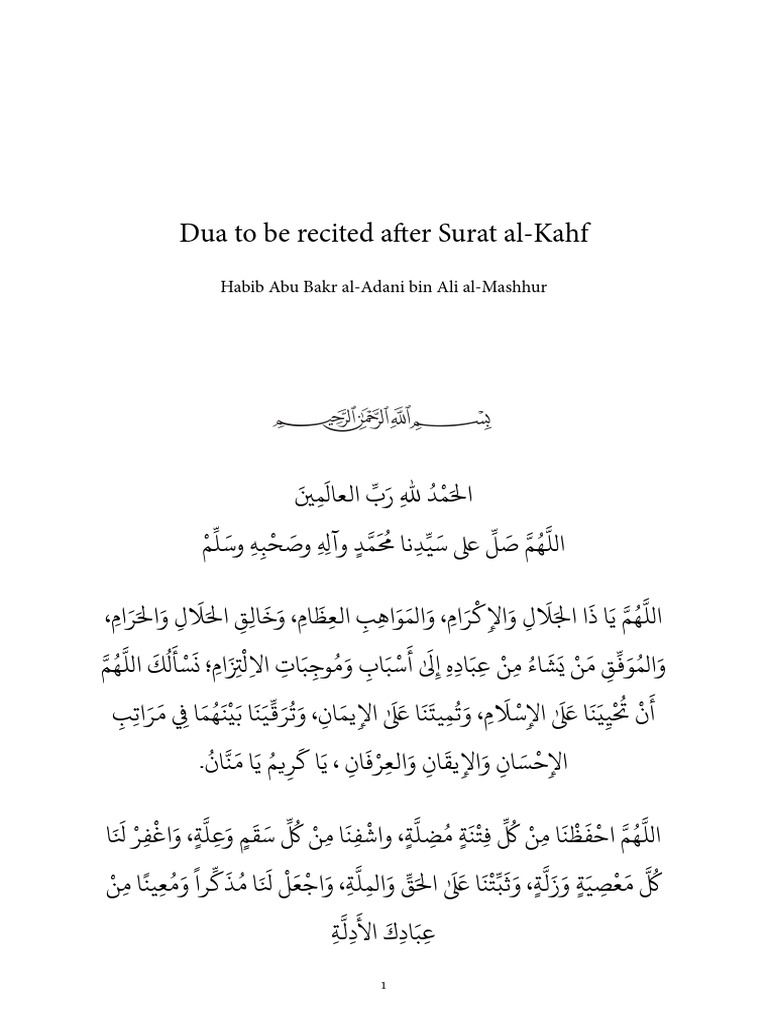 Dua to be recited after Surat al-Kahf
Habib Abu Bakr al-Adani bin Ali al-Mashhur
بِسْمِ اللَّهِ الرَّحْمَٰنِ الرَّحِيمِ
الحَمْدُ للهِ رَبِّ العالَمِينَ
اللَّهُمَّ صَلِّ على سَيِّدِنا مُحَمَّدٍ وآلِهِ وصَحْبِهِ وسَلِّمْ
اللَّهُمَّ يَا ذَا الجَلَالِ وَالإِكْرَامِ، وَالمَوَاهِبِ العِظَامِ، وَخَالِقِ الحَلَالِ وَالحَرَامِ،
وَالمُوَفِّقِ مَنْ يَشَاءُ مِنْ عِبَادِهِ إِلَىٰ أَسْبَابِ وَمُوجِبَاتِ الاِلْتِزَامِ؛ نَسْأَلُكَ اللَّهُمَّ
أَنْ تُحْيِيَنَا عَلَىٰ الإِسْلَامِ، وَتُمِيتَنَا عَلَىٰ الإِيمَانِ، وَتُرَقِّيَنَا بَيْنَهُمَا فِي مَرَاتِبِ
الإِحْسَانِ وَالإِيقَانِ وَالعِرْفَانِ ، يَا كَرِيمُ يَا مَنَّانُ.
اللَّهُمَّ احْفَظْنَا مِنْ كُلِّ فِتْنَةٍ مُضِلَّةٍ، واشْفِنَا مِنْ كُلِّ سَقَمٍ وَعِلَّةٍ، وَاغْفِرْ لَنَا
كُلَّ مَعْصِيَةٍ وَزَلَّةٍ، وَثَبِّتْنَا عَلَىٰ الحَقِّ وَالمِلَّةِ، وَاجْعَلْ لَنَا مُذَكِّراً وَمُعِينًا مِنْ
عِبَادِكَ الأَدِلَّةِ
1